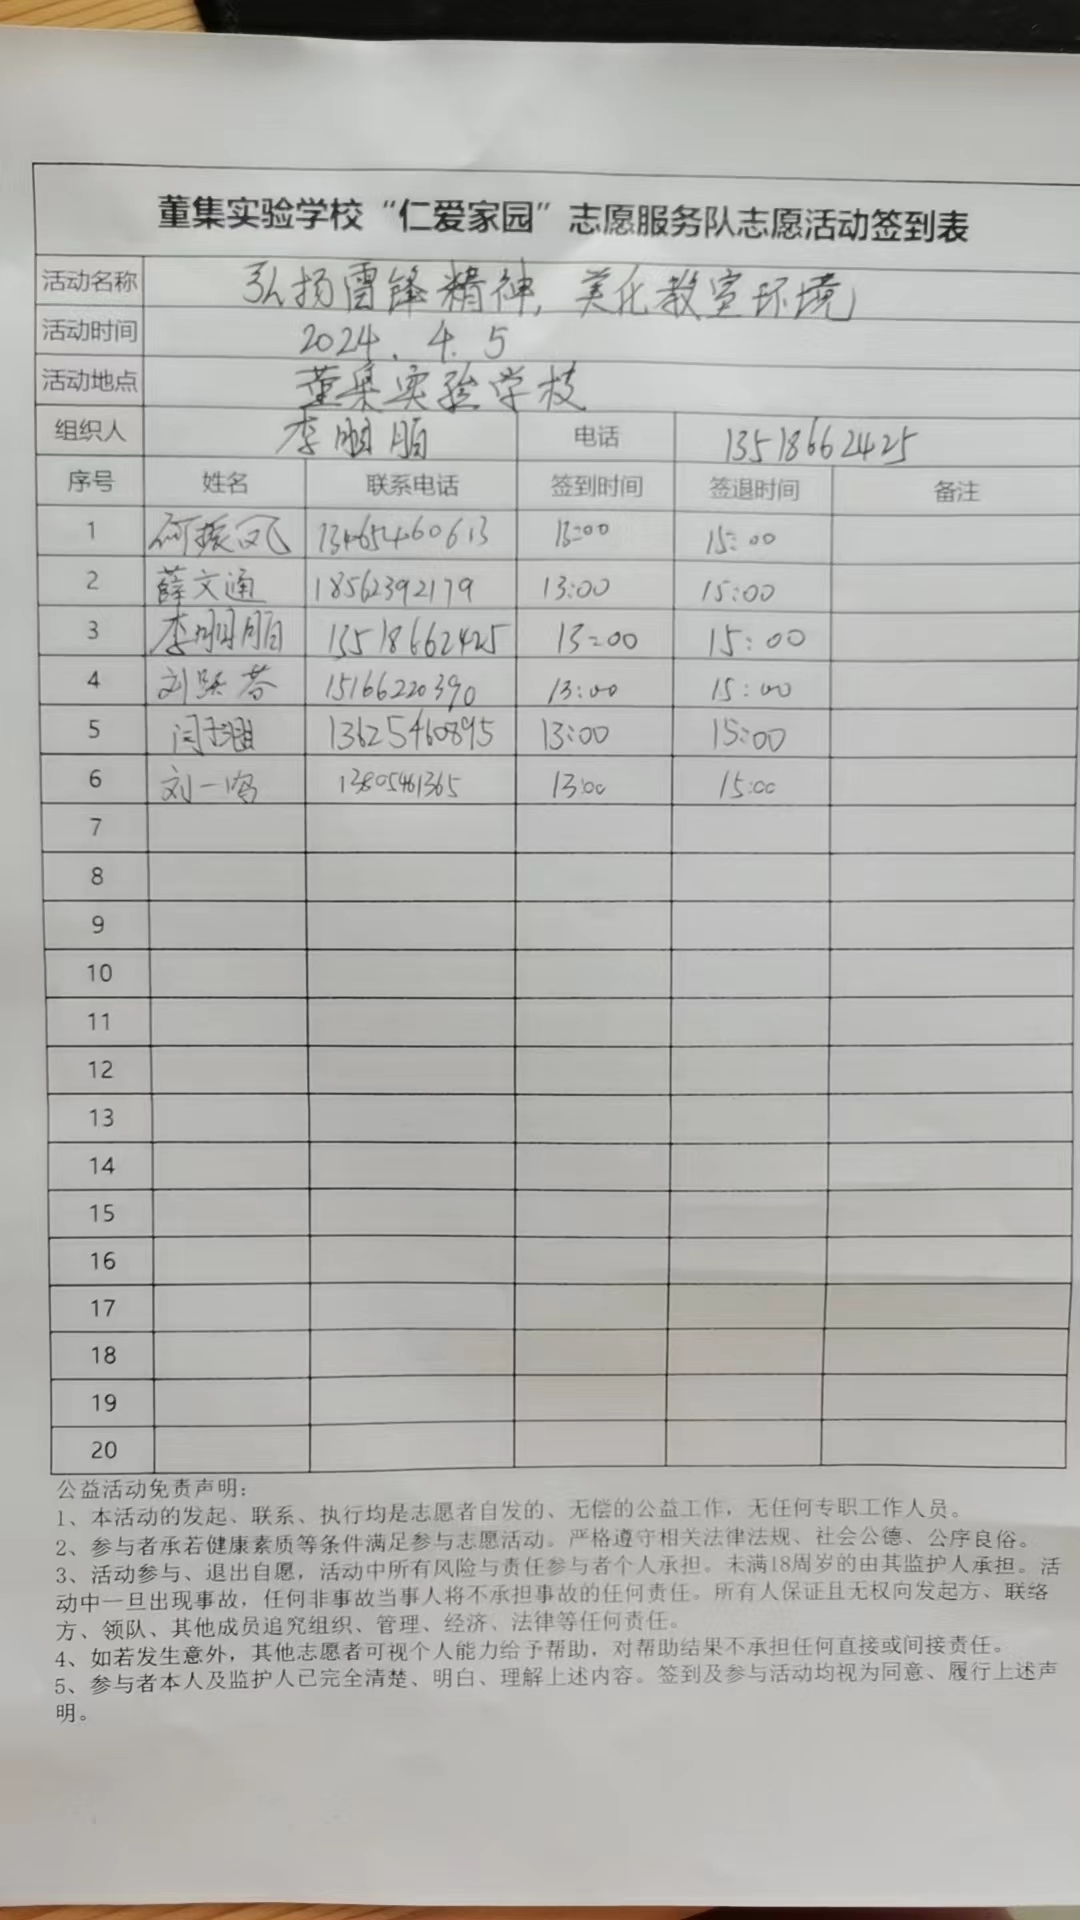 董集实验学校“仁爱家园”志愿服务队志愿活动签到表
活动名称 弘扬雷锋精神,美化教室环境
活动时间 2024.4.5
活动地点 董集实验学校
组织人 李 电话 13518662425
序号 姓名 联系电话 签到时间 签退时间 备注
1 何振凤 13465460613 13:00 15:00
2 薛文通 18562392179 13:00 15:00
3 李 13518662425 13:00 15:00
4 刘跃蓉 15166220390 13:00 15:00
5 闫 13625460895 13:00 15:00
6 刘一鸣 13805461365 13:00 15:00
7
8
9
10
11
12
13
14
15
16
17
18
19
20
公益活动免责声明：
1、本活动的发起、联系、执行均是志愿者自发的、无偿的公益工作，无任何专职工作人员。
2、参与者承若健康素质等条件满足参与志愿活动。严格遵守相关法律法规、社会公德、公序良俗。
3、活动参与、退出自愿，活动中所有风险与责任参与者个人承担。未满18周岁的由其监护人承担。活
动中一旦出现事故，任何非事故当事人将不承担事故的任何责任。所有人保证且无权向发起方、联络
方、领队、其他成员追究组织、管理、经济、法律等任何责任。
4、如若发生意外，其他志愿者可视个人能力给予帮助，对帮助结果不承担任何直接或间接责任。
5、参与者本人及监护人已完全清楚、明白、理解上述内容。签到及参与活动均视为同意、履行上述声
明。